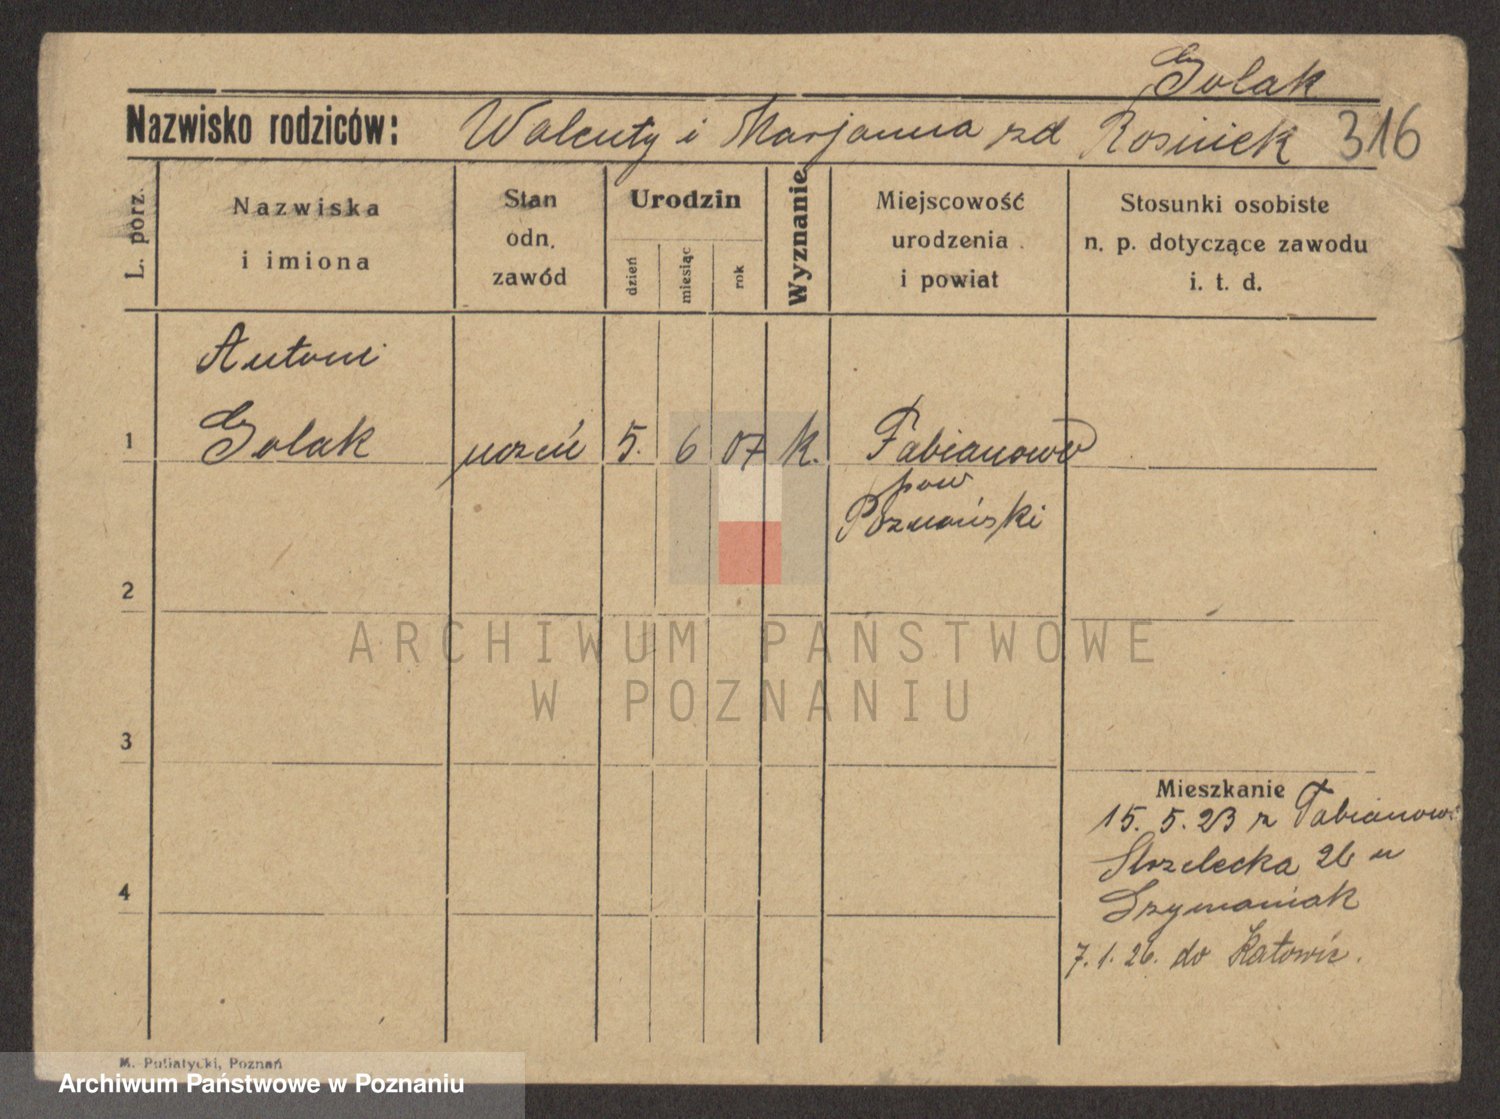 Golak
Nazwisko rodziców: Walenty i Marjanna zd Rosiniek 316
L. porz.
Nazwiska
i imiona
Stan
odn.
zawód
Urodzin
dzień
miesiąc
rok
Wyznanie
Miejscowość
urodzenia
i powiat
Stosunki osobiste
n. p. dotyczące zawodu
i. t. d.
Antoni
1 Golak uczeń 5. 6 07 k. Fabianowo
pow
Poznański
2
ARCHIWUM PAŃSTWOWE
W POZNANIU
3
Mieszkanie
15. 5. 23 z Fabianowo
Strzelecka 26 u
4
Szymaniak
7. 1. 26. do Katowic.
M. Putiatycki, Poznań
Archiwum Państwowe w Poznaniu